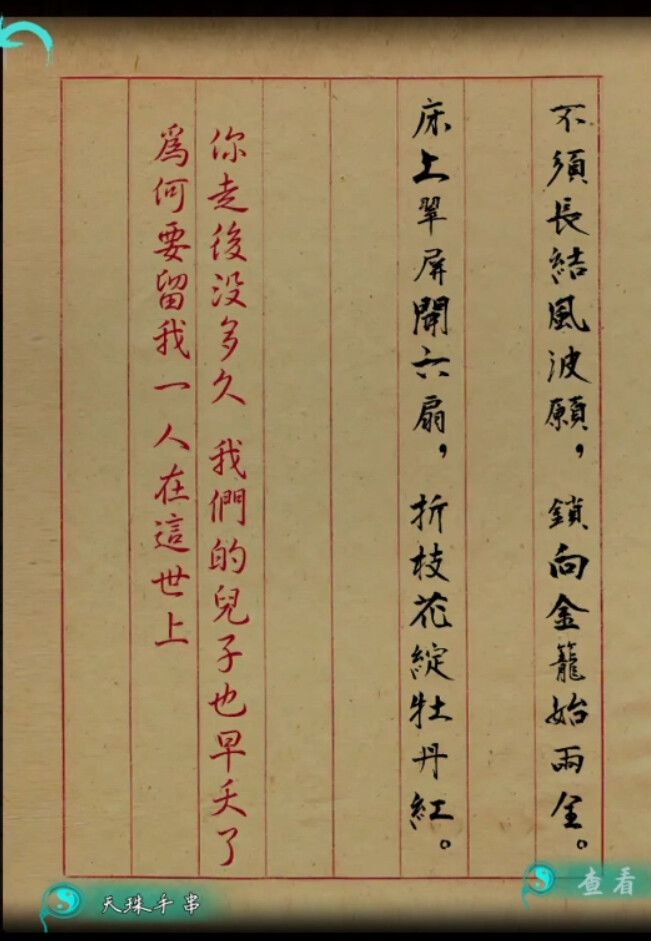 不須長結風波願，鎖向金籠始兩全。
床上翠屏開六扇，折枝花綻牡丹紅。
你走後没多久 我們的兒子也早夭了
爲何要留我一人在這世上
天珠手串
查看